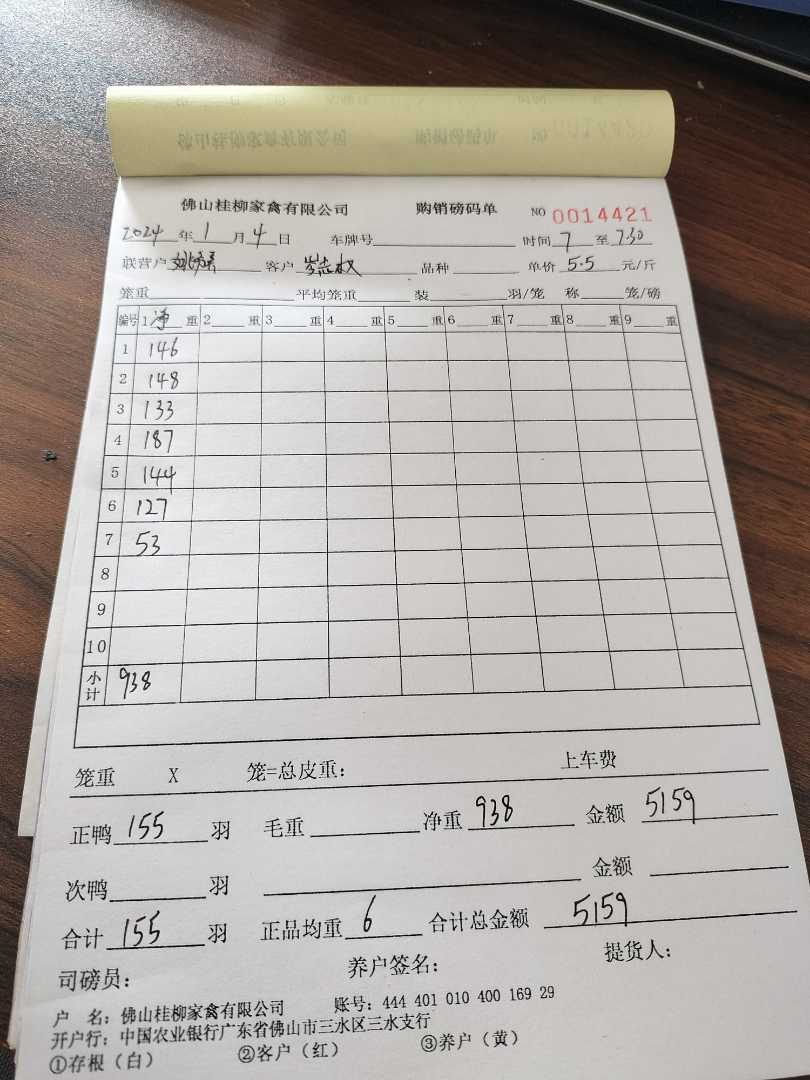 佛山桂柳家禽有限公司 购销磅码单 NO 0014421
2024年1月4日 车牌号 时间 7 至 7.30
联营户 客户 岑志权 品种 单价 5.5 元/斤
笼重 平均笼重 装 羽/笼 称 笼/磅
编号 1 净 重 2 重 3 重 4 重 5 重 6 重 7 重 8 重 9 重
1 146
2 148
3 133
4 187
5 144
6 127
7 53
8
9
10
小计 938
笼重 X 笼=总皮重: 上车费
正鸭 155 羽 毛重 净重 938 金额 5159
次鸭 羽 金额
合计 155 羽 正品均重 6 合计总金额 5159
司磅员: 养户签名: 提货人:
户 名: 佛山桂柳家禽有限公司 账号: 444 401 010 400 169 29
开户行: 中国农业银行广东省佛山市三水区三水支行
①存根（白） ②客户（红） ③养户（黄）